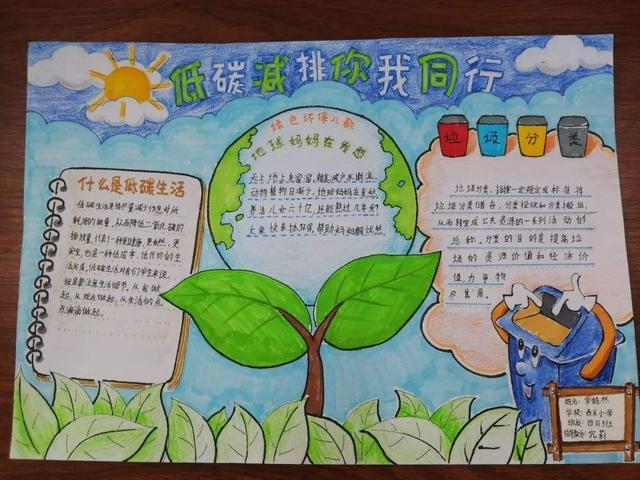 低碳减排你我同行
什么是低碳生活
低碳生活是指尽量减少作息时所
耗用的能量，从而降低二氧化碳的
排放量，代表一种更健康、更自然、更
安全，也是一种低成本、低代价的生
活方式，低碳生活对我们学生来说，
就是要注意生活细节，从我做
起，从现在做起，从生活的点
点滴滴做起。
绿色环保儿歌
地球妈妈在发愁
天上地上废蒸溜，植被减少水断流，
动物植物日渐少，地球妈妈在发愁，
养活儿女六十亿，还能熬过几年头？
大家快来搞环保，帮助妈妈解忧愁。
垃 圾 分 类
垃圾分类，指按一定规定或标准将
垃圾分类储存、分类投放和分类搬运，
从而转变成公共资源的一系列活动的
总称，分类的目的是提高垃
圾的资源价值和经济价
值，力争物
尽其用。
学校：西关小学
班级：四